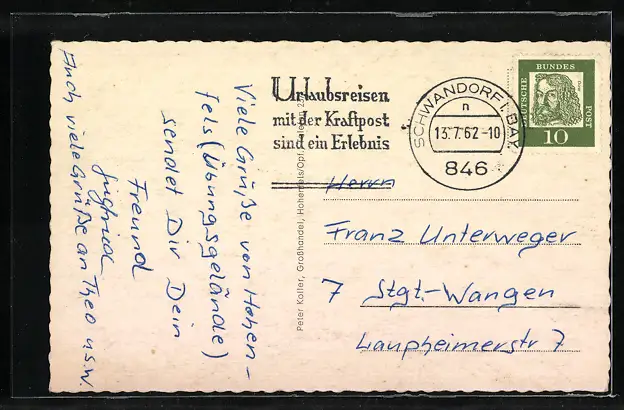 Viele Grüße von Hohen-
fels (Übungsgelände)
sendet Dir Dein
Freund
Auch viele Grüße an Theo u.s.w.
Peter Koller, Großhandel, Hohenfels/Opf.
Urlaubsreisen
mit der Kraftpost
sind ein Erlebnis
SCHWANDORF (BAY)
n
13.7.62-10
846
DEUTSCHE BUNDESPOST
10
Herrn
Franz Unterweger
7 Stgt.-Wangen
Laupheimerstr 7